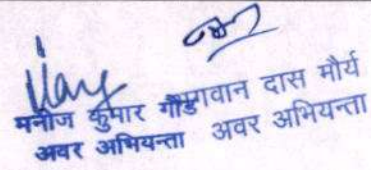 मनोज कुमार गौड़
अवर अभियन्ता
भगवान दास मौर्य
अवर अभियन्ता